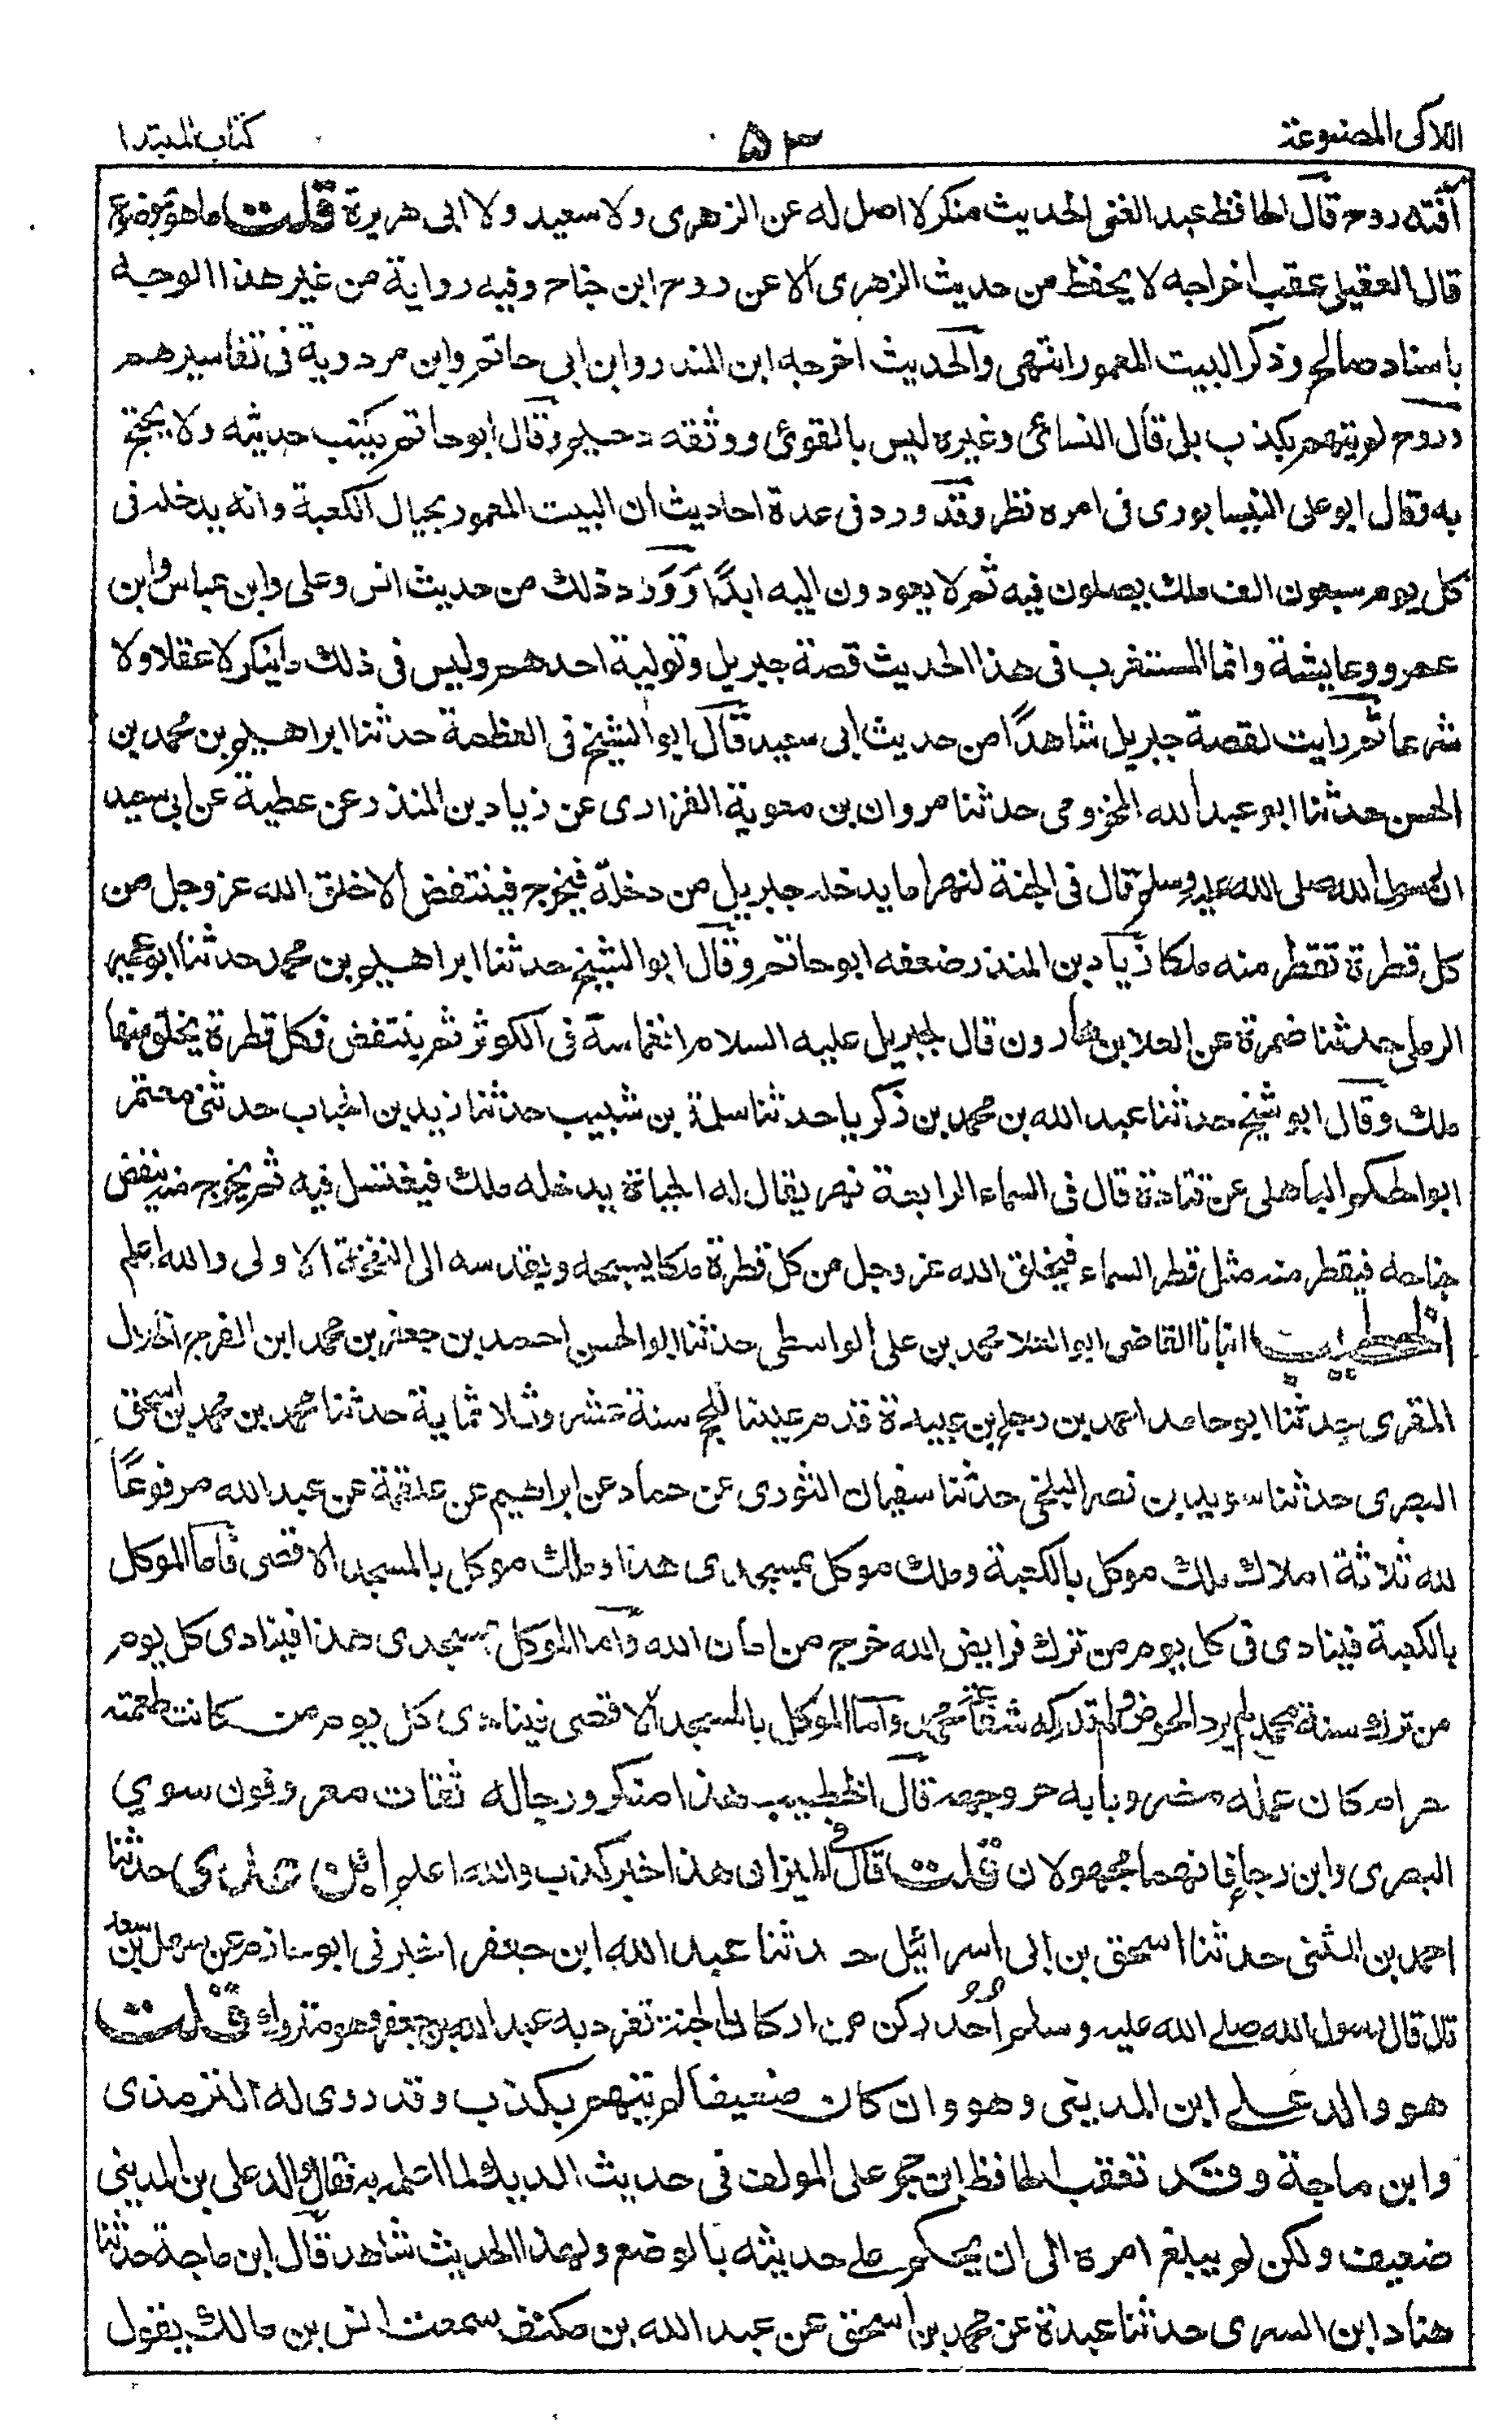 اللآلى المصنوعة
۵۳
كتاب المبتدا
آفته روح قال الحافظ عبد الغنى الحديث منكر لا اصل له عن الزهرى ولا سعيد ولا ابى هريرة قلت ما هو بموضوع
قال العقيلى عقب اخراجه لا يحفظ من حديث الزهرى الا عن روح ابن جناح وفيه رواية من غير هذا الوجه
باسناد صالح وذكر البيت المعمور انتهى والحديث اخرجه ابن المنذر وابن ابى حاتم وابن مردوية فى تفاسيرهم
وروح لم يتهم بكذب بل قال النسائى وغيره ليس بالقوى ووثقه دحيم وقال ابو حاتم يكتب حديثه ولا يحتج
به وقال ابو على النيسابورى فى امره نظر وقد ورد فى عدة احاديث ان البيت المعمور بحيال الكعبة وانه يدخله فى
كل يوم سبعون الف ملك يصلون فيه ثم لا يعودون اليه ابدًا وَوَرَد ذلك من حديث انس وعلى وابن عباس وابن
عمرو وعايشة وانما المستغرب فى هذا الحديث قصة جبريل وتولية احدهم وليس فى ذلك ما ينكر لا عقلا ولا
شرعا ثم رايت لقصة جبريل شاهدًا من حديث ابى سعيد قال ابو الشيخ فى العظمة حدثنا ابراهيم بن محمد بن
الحسن حدثنا ابو عبد الله المخزومى حدثنا مروان بن معوية الفزارى عن زياد بن المنذر عن عطية عن ابى سعيد
ان رسول الله صلى الله عليه وسلم قال فى الجنة لنهرا ما يدخله جبريل من دخلة فيخرج فينتفض الا خلق الله عز وجل من
كل قطرة تقطر منه ملكا زياد بن المنذر ضعفه ابو حاتم وقال ابو الشيخ حدثنا ابراهيم بن محمد حدثنا ابو عمير
الرملى حدثنا ضمرة عن العلا بن هارون قال لجبريل عليه السلام انغماسة فى الكوثر ثم ينتفض فكل قطرة يخلق منها
ملك وقال ابو شيخ حدثنا عبد الله بن محمد بن زكريا حدثنا سلمة بن شبيب حدثنا زيد بن الحباب حدثنى معتمر
ابو الحكم الباهلى عن قتادة قال فى السماء الرابعة نهر يقال له الحياة يدخله ملك فيغتسل فيه ثم يخرج منه ينفض
جناحه فيقطر منه مثل قطر السماء فيخلق الله عز وجل من كل قطرة ملكا يسبحه ويقدسه الى النفخة الاولى والله اعلم
الخطيب انبانا القاضى ابو العلا محمد بن على الواسطى حدثنا ابو الحسن احمد بن جعفر بن محمد ابن الفرج الخلال
المقرى حدثنا ابو حامد احمد بن رجاء بن عبيدة قدم علينا للحج سنة عشر وثلاثماية حدثنا محمد بن محمد بن اسحق
البصرى حدثنا سويد بن نصر البلخى حدثنا سفيان الثورى عن حماد عن ابراهيم عن علقمة عن عبد الله مرفوعًا
لله ثلاثة املاك ملك موكل بالكعبة وملك موكل بمسجدى هذا وملك موكل بالمسجد الاقصى فاما الموكل
بالكعبة فينادى فى كل يوم من ترك فرايض الله خرج من امان الله واما الموكل بمسجدى هذا فينادى كل يوم
من ترك سنة محمد لم يرد الحوض ولم تدركه شفاعة محمد واما الموكل بالمسجد الاقصى فينادى كل يوم من كانت طعمته
حرام كان عمله مضروبا به حر وجهه قال الخطيب هذا منكر ورجاله ثقات معروفون سوي
البصرى وابن رجاء فانهما مجهولان قلت قال فى الميزان هذا خبر كذب والله اعلم ابن عدى حدثنا
احمد بن المثنى حدثنا اسحق بن ابى اسرائيل حدثنا عبد الله ابن جعفر اخبرنى ابو حازم عن سهل بن سعد
قال قال رسول الله صلى الله عليه وسلم اُحُد ركن من اركان الجنة تفرد به عبد الله بن جعفر وهو متروك قلت
هو والد على ابن المدينى وهو وان كان ضعيفا لم يتهم بكذب وقد روى له الترمذى
وابن ماجة وقد تعقب الحافظ ابن حجر على المولف فى حديث الديك لما اعله به فقال والد على بن المدينى
ضعيف ولكن لم يبلغ امره الى ان يحكم على حديثه بالوضع ولهذا الحديث شاهد قال ابن ماجة حدثنا
هناد ابن السرى حدثنا عبدة عن محمد بن اسحق عن عبد الله بن مكنف سمعت انس بن مالك يقول